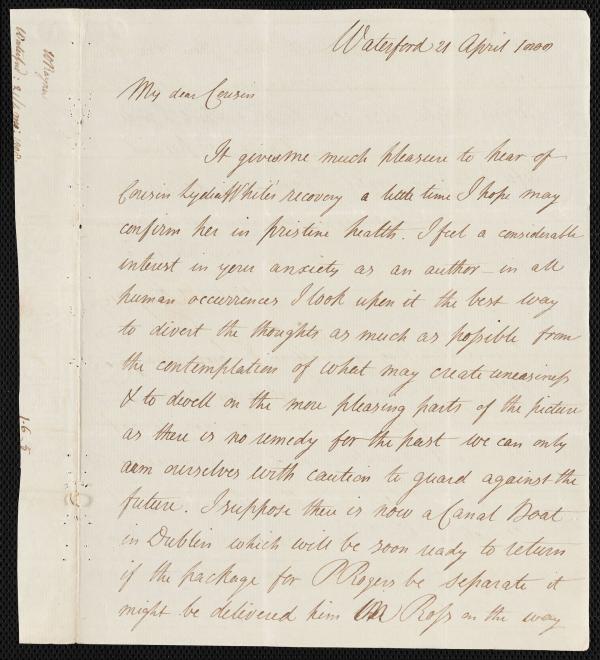 Waterford 21 April 1800
My dear Cousin
It gives me much pleasure to hear of
Cousin Lydia White's recovery a little time I hope may
confirm her in pristine health. I feel a considerable
interest in your anxiety as an author - in all
human occurrences I look upon it the best way
to divert the thoughts as much as possible from
the contemplation of what may create uneasiness
& to dwell on the more pleasing parts of the picture
as there is no remedy for the past we can only
arm ourselves with caution to guard against the
future. I suppose there is now a Canal Boat
in Dublin which will be soon ready to return
if the package for P Rogers be separate it
might be delivered him Ross on the way
Waterford: 21/